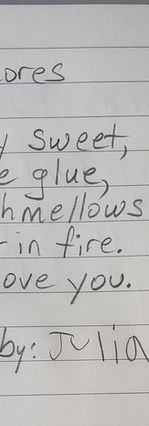 ores
sweet,
e glue,
hmellows
in fire.
ove you.
by: Julia